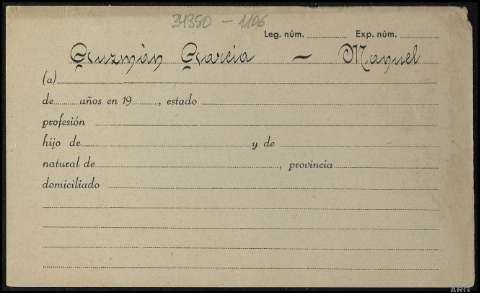 31350 - 1106
Leg. núm. Exp. núm.
Guzmán García — Manuel
(a)
de años en 19 , estado
profesión
hijo de y de
natural de , provincia
domiciliado